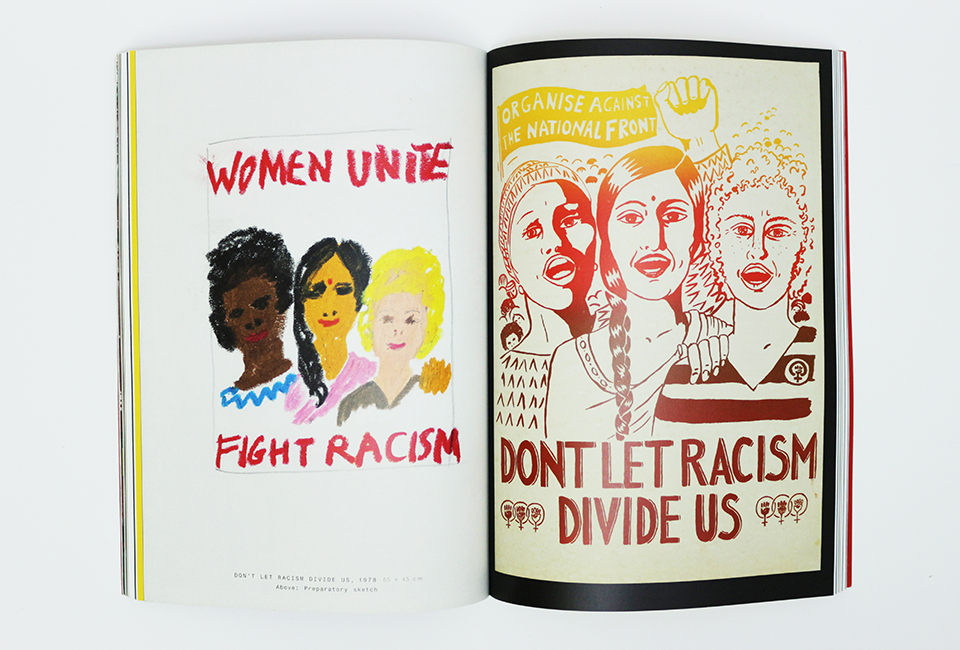 WOMEN UNITE
FIGHT RACISM
DON'T LET RACISM DIVIDE US, 1978 65 x 45 cm
Above: Preparatory sketch
ORGANISE AGAINST
THE NATIONAL FRONT
DONT LET RACISM
DIVIDE US